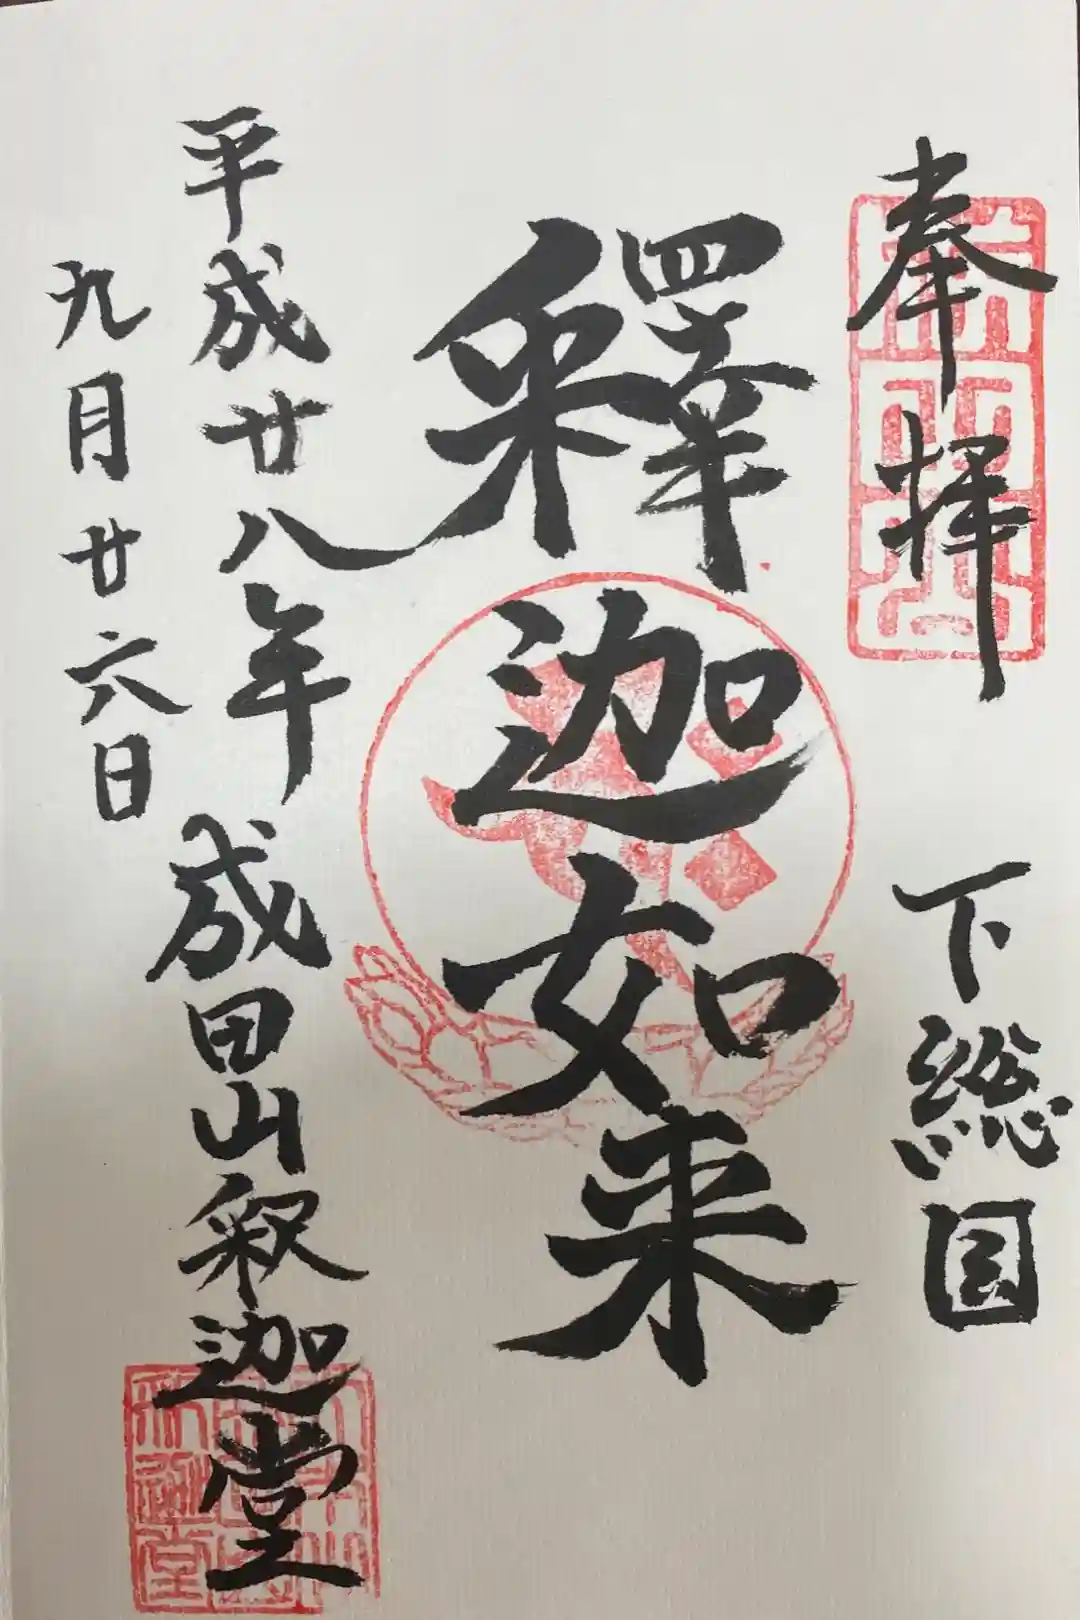 奉拝
下総国
釋迦如来
平成廿八年
九月廿六日
成田山釈迦堂